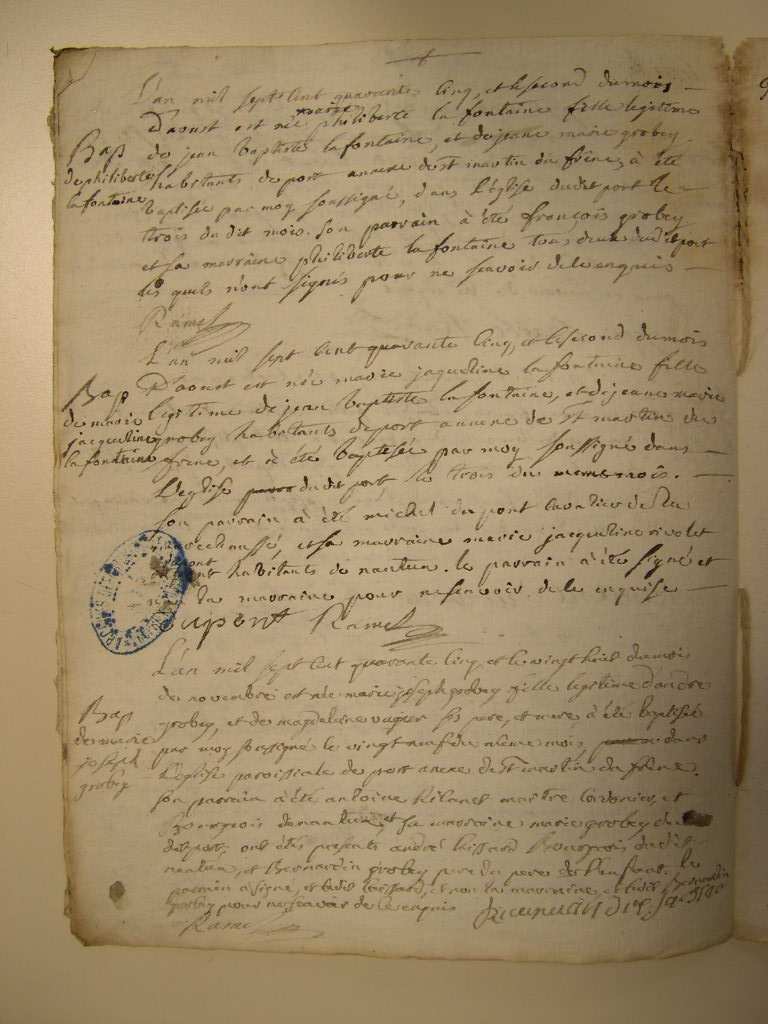 L'an mil sept cent quarante cinq, et le second du mois
D'aoust est née marie philiberte la fontaine fille legitime
de jean baptiste la fontaine, et de jeane marie grobey
habitants de port annexe de st martin du frêne, à été
baptisée par moy soussigné, dans l'église dudit port le
trois du dit mois. son parrain à été françois grobey
et sa marraine philiberte la fontaine tous deux dudit port
les quels n'ont signés pour ne scavoir de ce enquis
Ramel
Bap
de philiberte
la fontaine
L'an mil sept cent quarante cinq, et le second du mois
D'aoust est née marie jaqueline la fontaine fille
legitime de jean baptiste la fontaine, et de jeane marie
grobey habitants de port annexe de st martin du
frêne, et à été baptisée par moy soussigné dans
L'église dudit port, le trois du meme mois.
son parrain à été michel du pont cavalier de la
marechaussé, et sa marraine marie jacqueline rivolet
habitants de nantua. le parrain à été signé et
la marraine pour ne scavoir de ce enquise
Dupont Ramel
Bap
de marie
jacqueline
la fontaine
L'an mil sept cent quarante cinq, et le vingt huit du mois
de novembre est née marie joseph grobey fille legitime d'andre
grobey, et de magdelaine ses pere, et mere à été baptisée
par moy soussigné le vingt neuf du même mois, dans
L'église paroissiale de port anexe de st martin du frêne.
son parrain à été antoine maître cordonier, et
Bourgeois de nantua, et sa marraine marie grobey du
dit port; ont étés presents andré Bourgeois dudit
nantua, et Bernardin grobey pere du pere de l'enfant. le
parrain a signé, et ledit et non la marraine, et ledit bernardin
grobey pour ne scavoir de ce enquis
Ramel
Bap
de marie
joseph
grobey